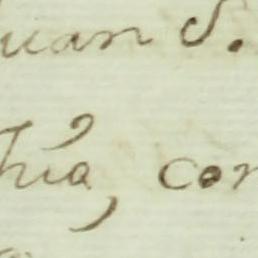 uan S.
hia, con